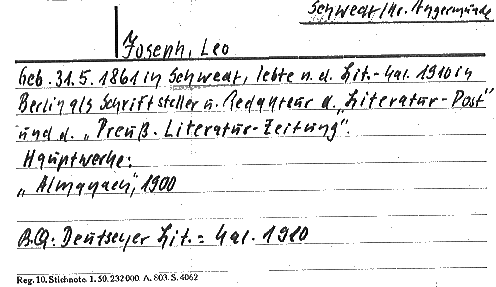 Schwedt/Kr. Angermünde
Joseph, Leo
Geb. 31.5.1861 in Schwedt, lebte n. d. Lit.-Kal. 1910 in
Berlin als Schriftsteller u. Redakteur d. „Literatur-Post"
und d. „Preuß. Literatur-Zeitung".
Hauptwerke:
„Almanach", 1900
B.Q.: Deutscher Lit.=Kal. 1910
Reg. 10. Stichnote. 1. 50. 232000. A. 803. S. 4062